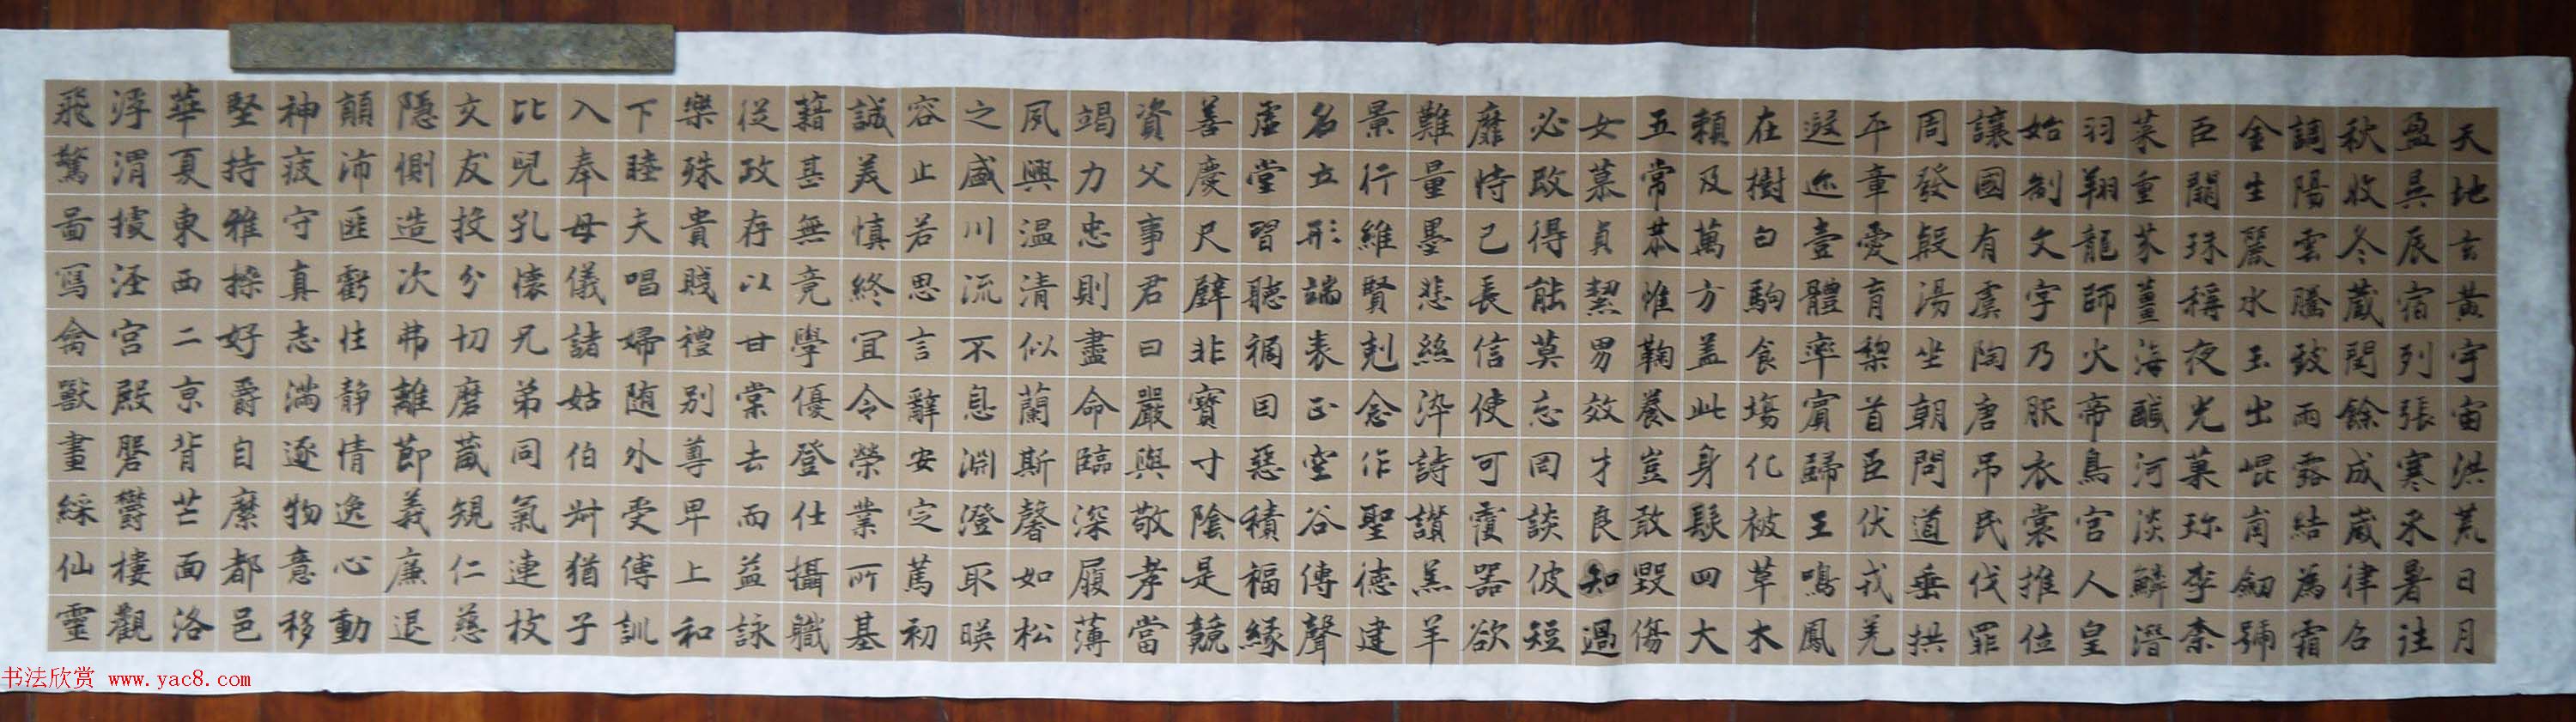 天地玄黃宇宙洪荒日月
盈昃辰宿列張寒來暑往
秋收冬蔵閏餘成歲律召
調陽雲騰致雨露結為霜
金生麗水玉出崐崗劒號
臣闕珠稱夜光菓珎李柰
菜重芥薑海鹹河淡鱗潛
羽翔龍師火帝鳥官人皇
始制文字乃服衣裳推位
讓國有虞陶唐吊民伐罪
周發殷湯坐朝問道垂拱
平章愛育黎首臣伏戎羌
遐迩壹體率賓歸王鳴鳳
在樹白駒食場化被草木
賴及萬方盖此身髮四大
五常恭惟鞠養豈敢毀傷
女慕貞絜男效才良知過
必改得能莫忘罔談彼短
靡恃己長信使可覆器欲
難量墨悲絲染詩讃羔羊
景行維賢剋念作聖德建
名立形端表正空谷傳聲
虛堂習聽禍因惡積福緣
善慶尺璧非寶寸陰是競
資父事君曰嚴與敬孝當
竭力忠則盡命臨深履薄
夙興温清似蘭斯馨如松
之盛川流不息淵澄取暎
容止若思言辭安定篤初
誠美慎終宜令榮業所基
籍甚無竟學優登仕攝職
從政存以甘棠去而益詠
樂殊貴賤禮別尊卑上和
下睦夫唱婦随外受傅訓
入奉母儀諸姑伯叔猶子
比兒孔懷兄弟同氣連枝
交友投分切磨箴規仁慈
隐惻造次弗離節義廉退
顛沛匪虧性静情逸心動
神疲守真志滿逐物意移
堅持雅操好爵自縻都邑
華夏東西二京背芒面洛
浮渭據涇宮殿磐欝樓觀
飛驚啚寫禽獸畫綵仙靈
书法欣赏 www.yac8.com